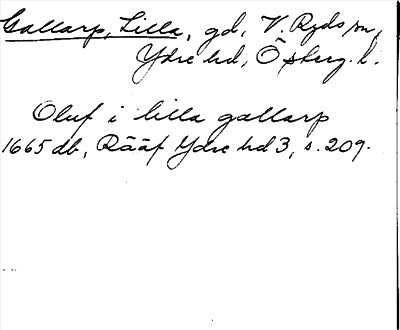 Gallarp, Lilla, gd, V. Ryds sn,
Ydre hd, Östergl.
Oluf i lilla gallarp
1665 db, Rääf Ydre hd 3, s. 209.